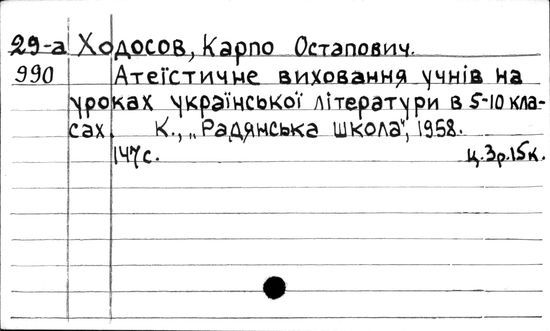 29-а Ходосов, Карпо Остапович.
990 Атеїстичне виховання учнів на
уроках української літератури в 5-10 кла-
сах. К., „Радянська школа", 1958.
147с. ц. 3р.15к.